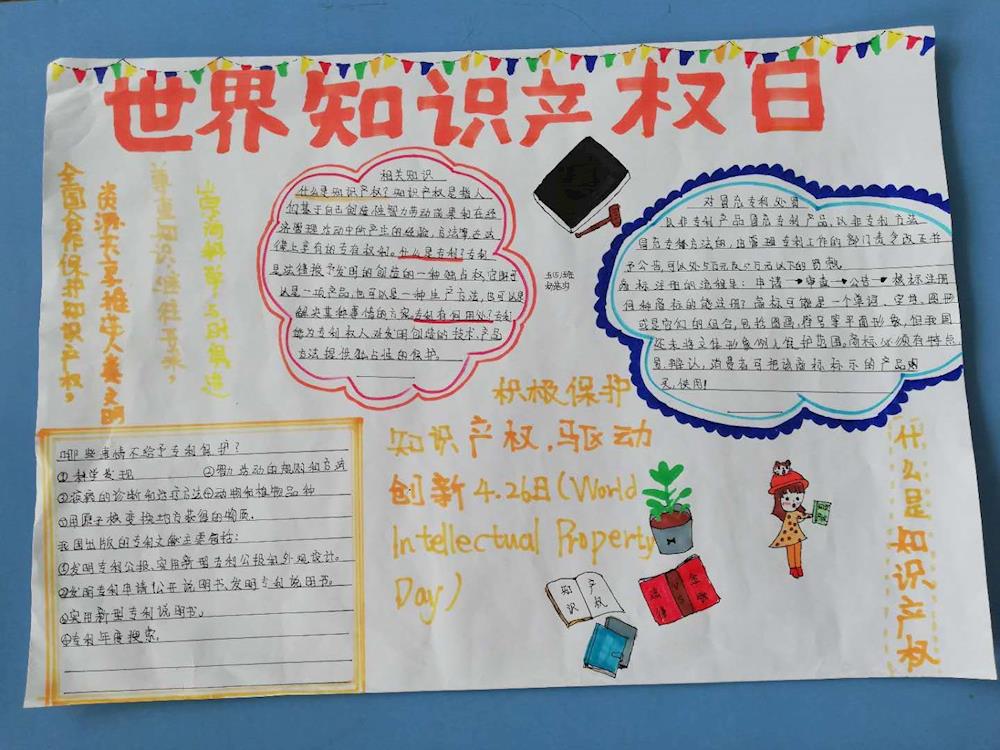 世界知识产权日
全面合作保护知识产权,
资源共享推进人类文明
尊重知识,继往开来,
崇尚科学与时俱进
相关知识
什么是知识产权?知识产权是指人
们基于自己创造性智力劳动成果和在经
济管理活动中所产生的经验,方法等在法
律上享有的专有权利。什么是专利?专利
是法律授予发明的创造的一种独占权,它即可
以是一项产品,也可以是一种生产方法,也可以是
解决某种事情的方案,专利有何用处?专利
能为专利权人对发明创造的技术,产品
方法提供独占性的保护。
对冒充专利处置
以非专利产品冒充专利产品,以非专利方法
冒充专利方法的,由管理专利工作的部门责令改正并
予公告,可以处5万元以下的罚款
商标注册的流程是:申请→审查→公告→核标注册
何种商标的能注册?商标可能是一个单词、字母、图形
或是它们的组合,包括图画,符号等平面形象,但我国
还未将立体形象例入保护范围,商标必须有特点,
易辨认,消费者可把该商标标示的产品
积极保护
知识产权,驱动
创新4.26日(World
Intellectual Property
Day)
哪些事情不给予专利保护?
①科学发现 ②智力活动的规则和方法
③疾病的诊断和治疗方法④动物和植物品种
⑤用原子核变换均方获得的物质。
我国出版的专利文献主要包括:
①发明专利公报、实用新型专利公报和外观设计。
②发明专利申请公开说明书、发明专利说明书。
③实用新型专利说明书。
④专利年度搜索。
知识
产权
法律
什么是知识产权